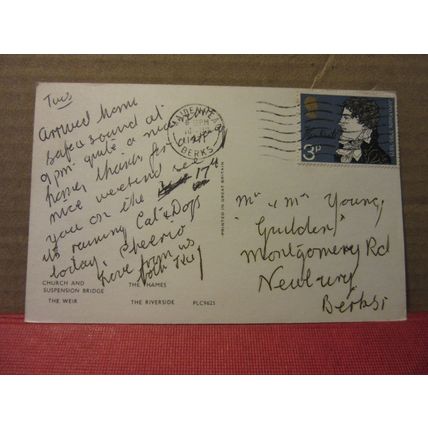 Tues
Arrived home
safe & sound at
9 pm quite a nice
thanks for
nice weekend see
you on the 17th
its raining Cats & Dogs
today, Cheerio
love from us
both
CHURCH AND
SUSPENSION BRIDGE
THE THAMES
THE WEIR
THE RIVERSIDE
PLC9625
PRINTED IN GREAT BRITAIN
MAIDENHEAD
PM
BERKS
3p
Mr & Mrs Young,
"Guilden"
Montgomery Rd
Newbury
Berks